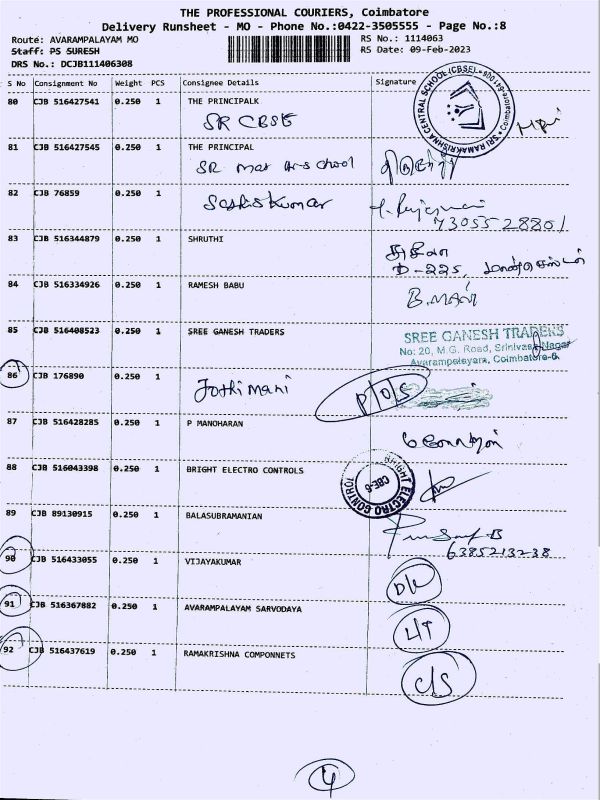 THE PROFESSIONAL COURIERS, Coimbatore
Delivery Runsheet - MO - Phone No.:0422-3505555 - Page No.:8
Route: AVARAMPALAYAM MO RS No.: 1114063
Staff: PS SURESH RS Date: 09-Feb-2023
DRS No.: DCJB111406308
S No Consignment No Weight PCS Consignee Details Signature
80 CJB 516427541 0.250 1 THE PRINCIPALK
SR CBSE
SRI RAMAKRISHNA CENTRAL SCHOOL (CBSE)
81 CJB 516427545 0.250 1 THE PRINCIPAL
SR mat
82 CJB 76859 0.250 1
7305528801
83 CJB 516344879 0.250 1 SHRUTHI
D-225,
84 CJB 516334926 0.250 1 RAMESH BABU
85 CJB 516408523 0.250 1 SREE GANESH TRADERS
SREE GANESH TRADERS
No: 20, M.G. Road, Srinivasa Nagar
Avarampalayam, Coimbatore-6.
86 CJB 176890 0.250 1 Jothimani
87 CJB 516428285 0.250 1 P MANOHARAN
88 CJB 516043398 0.250 1 BRIGHT ELECTRO CONTROLS
BRIGHT ELECTRO CONTROLS CBE-6
89 CJB 89130915 0.250 1 BALASUBRAMANIAN
6385213238
90 CJB 516433055 0.250 1 VIJAYAKUMAR
D/L
91 CJB 516367882 0.250 1 AVARAMPALAYAM SARVODAYA
L/T
92 CJB 516437619 0.250 1 RAMAKRISHNA COMPONNETS
C/S
4